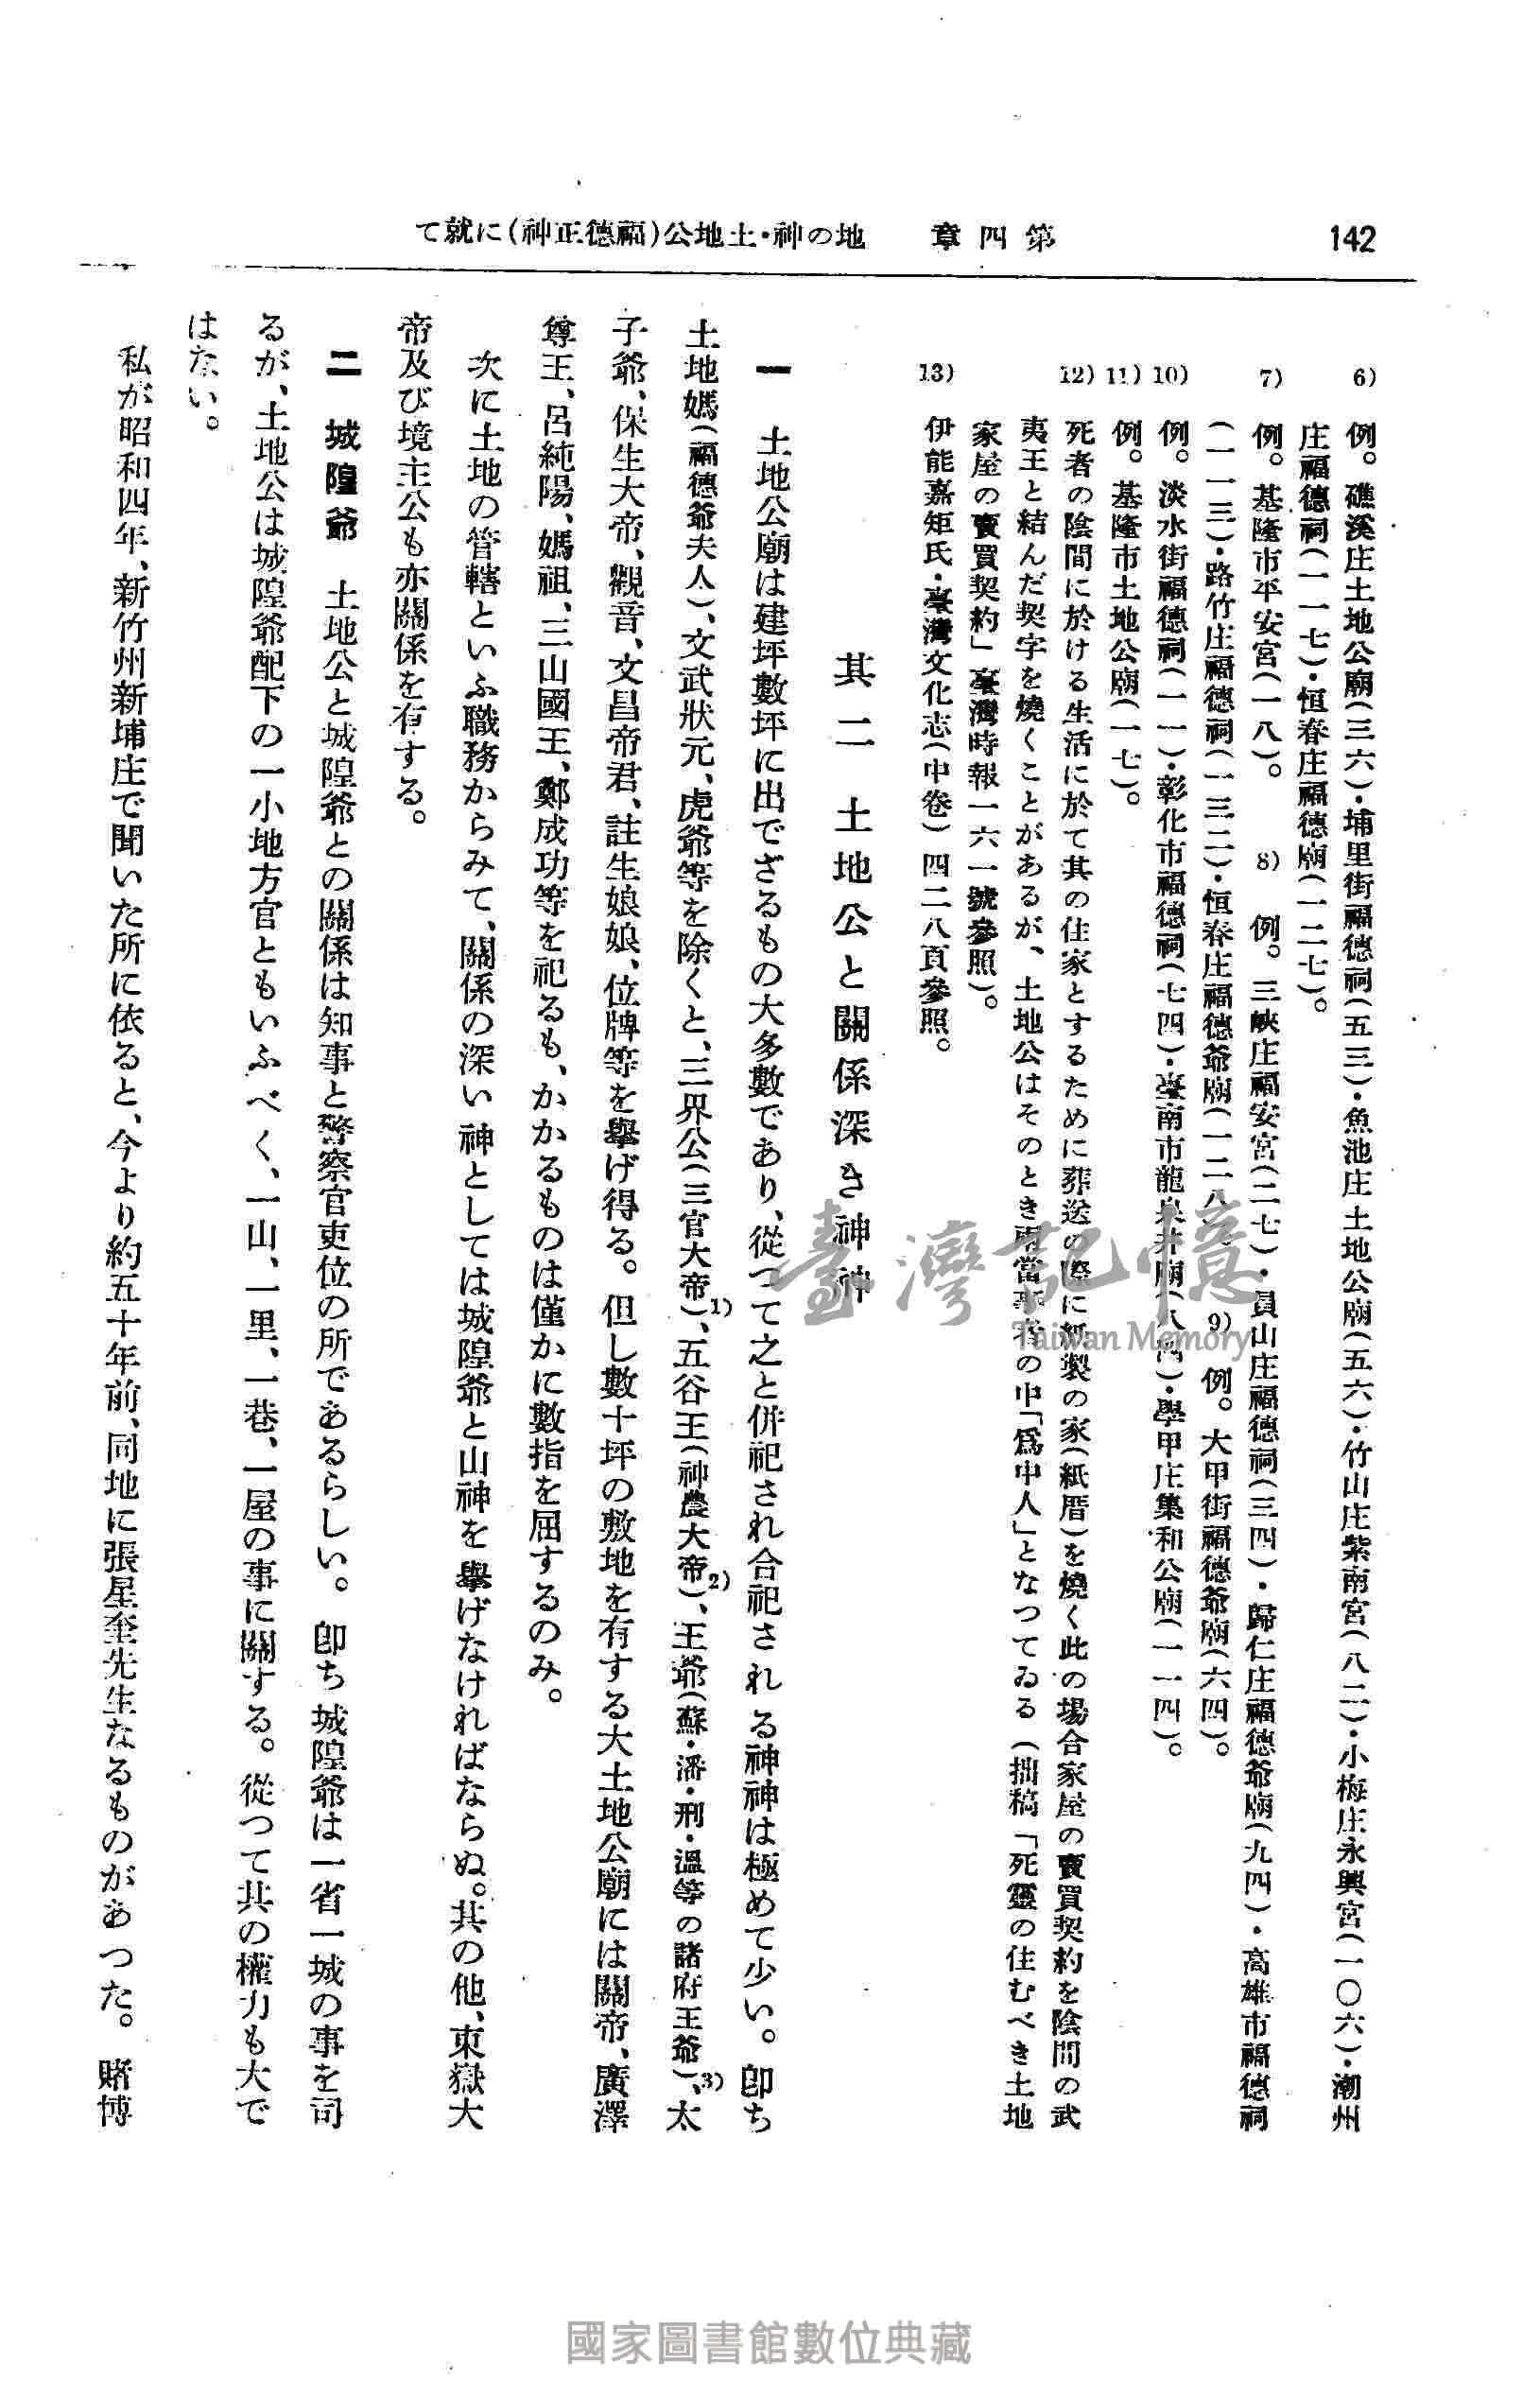 142
第四章　地の神・土地公(福德正神)に就て
6) 例。礁溪庄土地公廟(三六)・埔里街福德祠(五三)・魚池庄土地公廟(五六)・竹山庄紫南宮(八二)・小梅庄永興宮(一〇六)・潮州
庄福德祠(一一七)・恒春庄福德廟(一二七)。
7) 例。基隆市平安宮(一八)。　8) 例。三峽庄福安宮(二七)・員山庄福德祠(三四)・歸仁庄福德爺廟(九四)・高雄市福德祠
(一一三)・路竹庄福德祠(一三二)・恒春庄福德爺廟(一二八)。　9) 例。大甲街福德爺廟(六四)。
10) 例。淡水街福德祠(一一)・彰化市福德祠(七四)・臺南市龍泉井廟(八四)・學甲庄集和公廟(一一四)。
11) 例。基隆市土地公廟(一七)。
12) 死者の陰間に於ける生活に於て其の住家とするために葬送の際に紙製の家(紙厝)を燒く此の場合家屋の賣買契約を陰間の武
夷王と結んだ契字を燒くことがあるが、土地公はそのとき兩當事者の中「爲中人」となつてゐる(拙稿「死靈の住むべき土地
家屋の賣買契約」臺灣時報一六一號參照)。
13) 伊能嘉矩氏・臺灣文化志(中卷)四二八頁參照。
其二　土地公と關係深き神神
一　土地公廟は建坪數坪に出でざるもの大多數であり、從つて之と併祀され合祀される神神は極めて少い。卽ち
土地媽(福德爺夫人)、文武狀元、虎爺等を除くと、三界公(三官大帝)1)、五谷王(神農大帝)2)、王爺(蘇・潘・刑・溫等の諸府王爺)3)、太
子爺、保生大帝、觀音、文昌帝君、註生娘娘、位牌等を擧げ得る。但し數十坪の敷地を有する大土地公廟には關帝、廣澤
尊王、呂純陽、媽祖、三山國王、鄭成功等を祀るも、かかるものは僅かに數指を屈するのみ。
次に土地の管轄といふ職務からみて、關係の深い神としては城隍爺と山神を擧げなければならぬ。其の他、東嶽大
帝及び境主公も亦關係を有する。
二　城隍爺　土地公と城隍爺との關係は知事と警察官吏位の所であるらしい。卽ち城隍爺は一省一城の事を司
るが、土地公は城隍爺配下の一小地方官ともいふべく、一山、一里、一巷、一屋の事に關する。從つて其の權力も大で
はない。
私が昭和四年、新竹州新埔庄で聞いた所に依ると、今より約五十年前、同地に張星奎先生なるものがあつた。賭博
臺灣記憶
Taiwan Memory
國家圖書館數位典藏